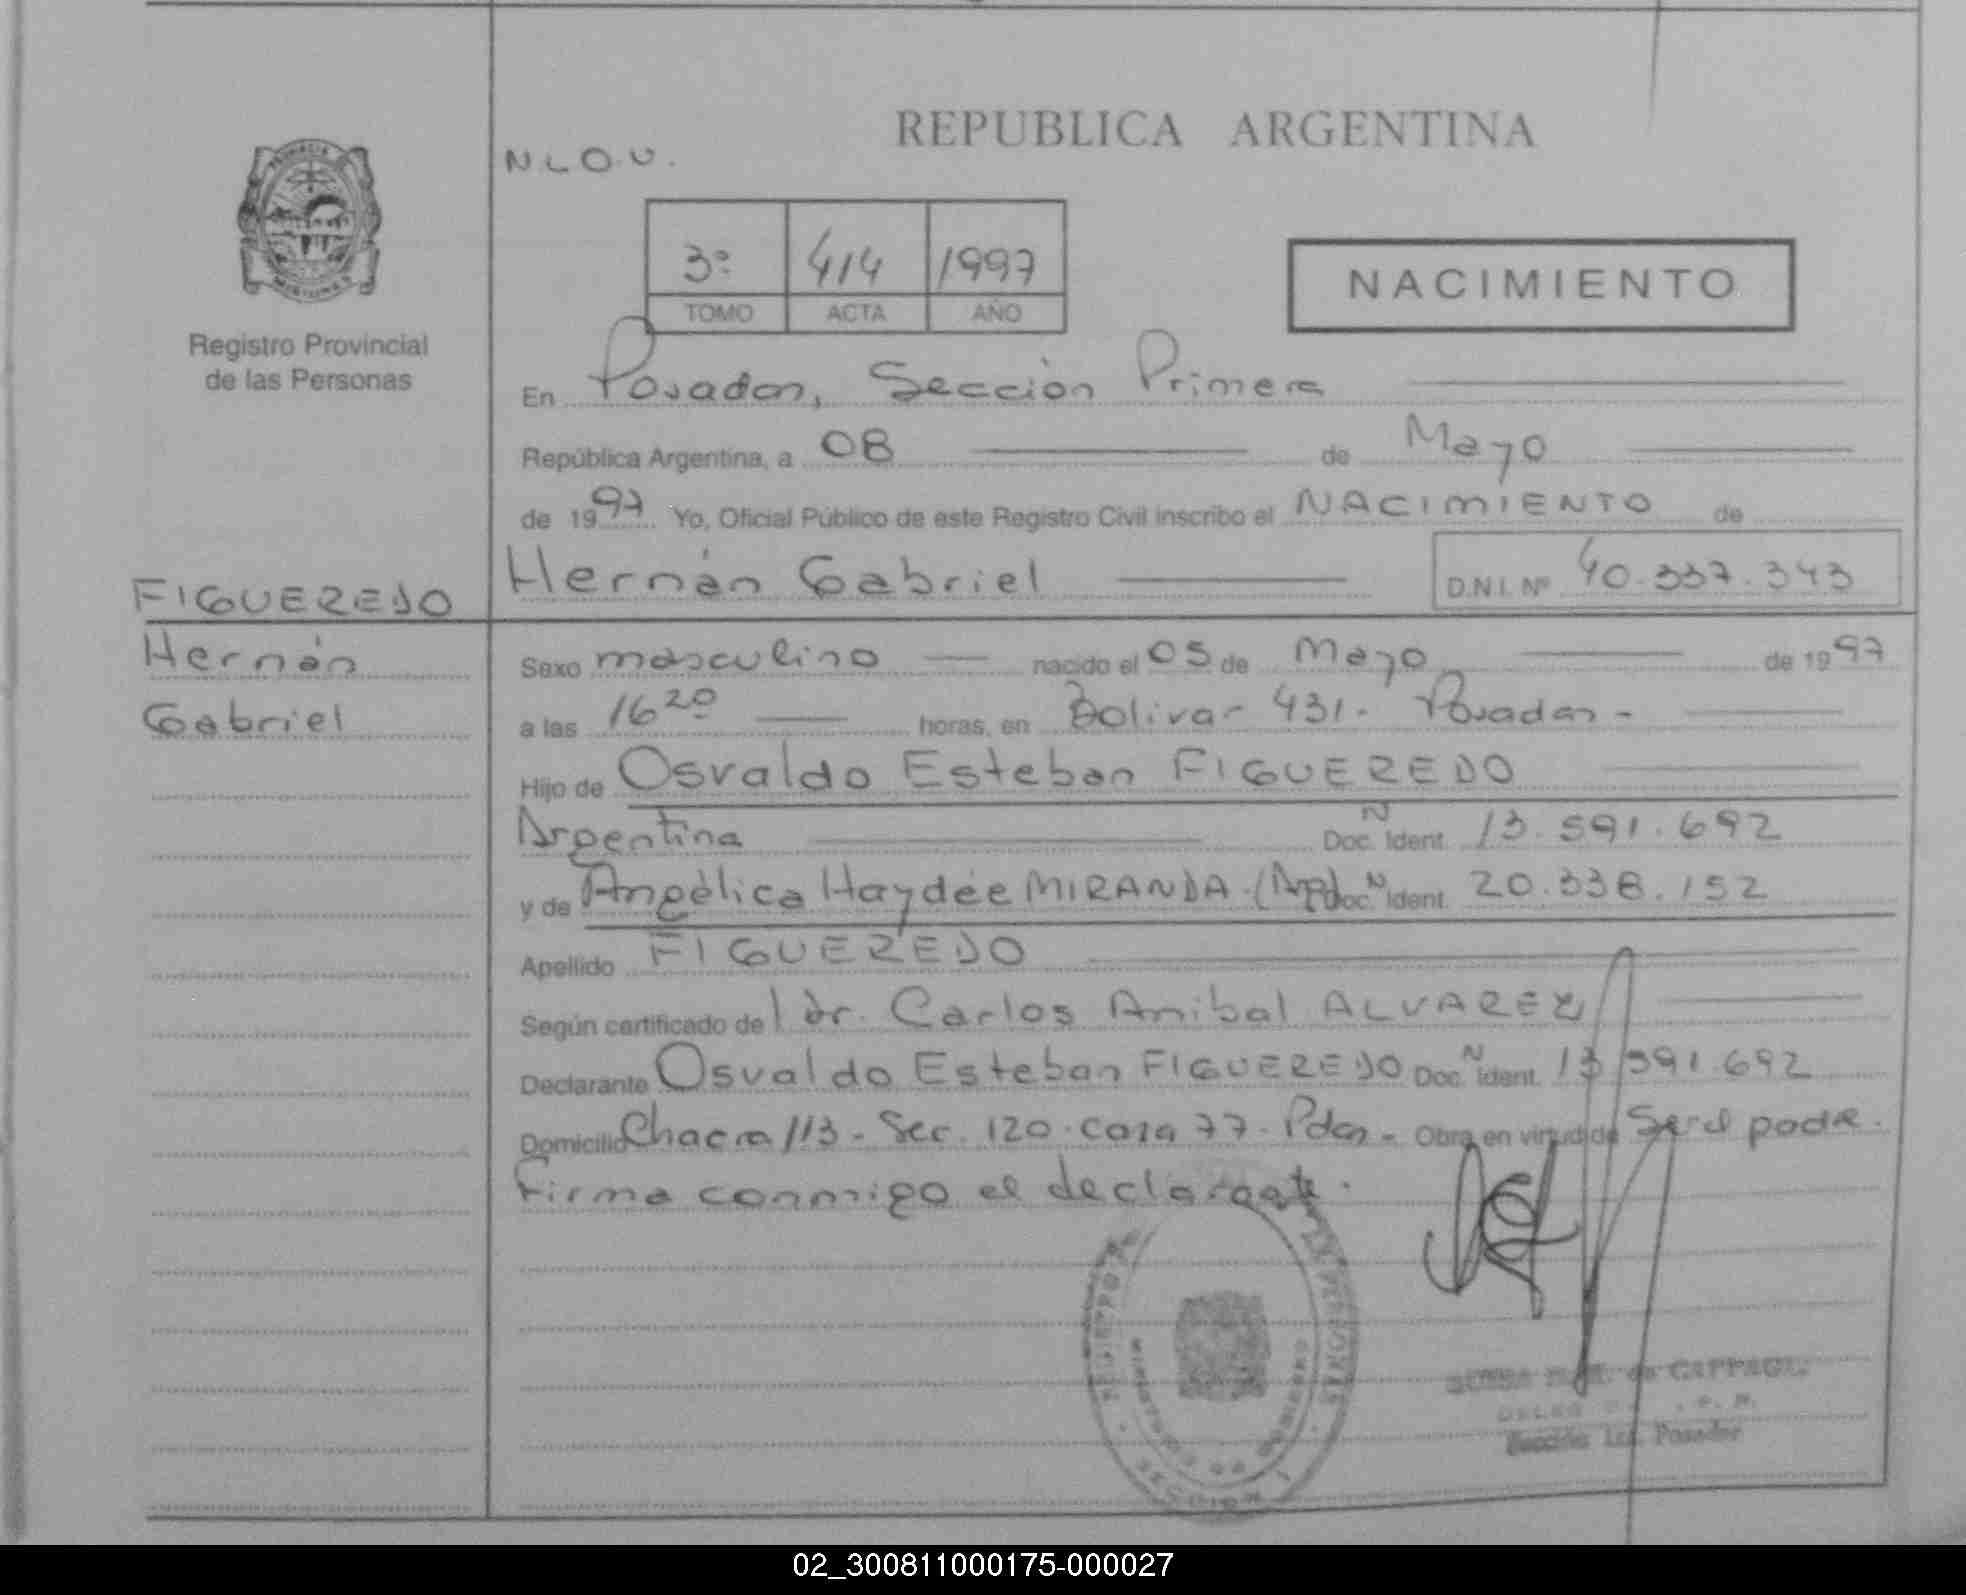 REPUBLICA ARGENTINA
N.L.O.U.
3º 414 1997
TOMO ACTA AÑO
NACIMIENTO
PROVINCIA
MISIONES
Registro Provincial
de las Personas
En Posadas, Sección Primera
República Argentina, a 08 de Mayo
de 1997 Yo, Oficial Público de este Registro Civil inscribo el NACIMIENTO de
Hernán Gabriel D.N.I. Nº 40.337.343
FIGUEREDO
Hernán
Gabriel
Sexo masculino nacido el 05 de Mayo de 1997
a las 16 20 horas, en Bolivar 431. Posadas -
Hijo de Osvaldo Esteban FIGUEREDO
Argentina Doc. N Ident. 13.591.692
y de Angélica Haydée MIRANDA. Doc. N Ident. 20.338.152
Apellido FIGUEREDO
Según certificado del dr. Carlos Anibal ALVAREZ
Declarante Osvaldo Esteban FIGUEREDO Doc. N Ident. 13.591.692
Domicilio Chacra 113 - Sec. 120. casa 77. Pdas - Obra en virtud de Ser el padre.
Firma conmigo el declarante.
Sección 1ra. Posadas
02_300811000175-000027